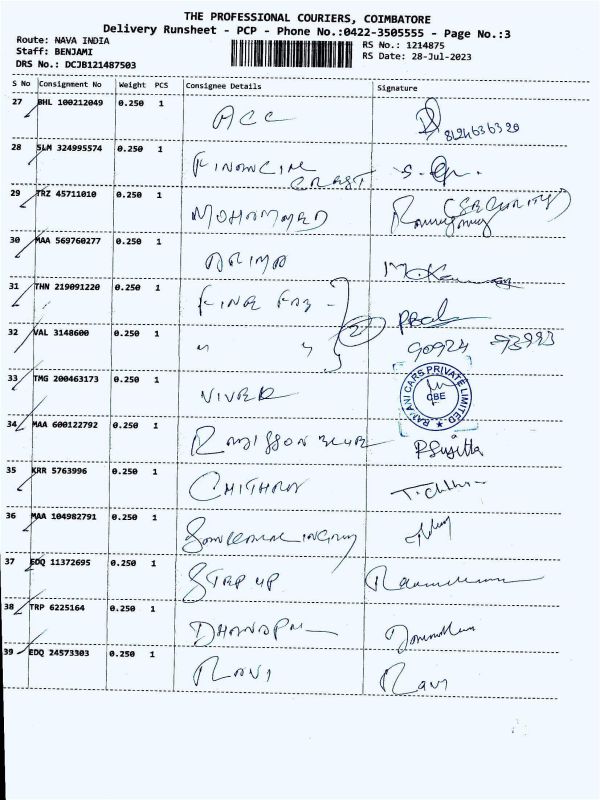 THE PROFESSIONAL COURIERS, COIMBATORE
Delivery Runsheet - PCP - Phone No.:0422-3505555 - Page No.:3
Route: NAVA INDIA
Staff: BENJAMI
DRS No.: DCJB121487503
RS No.: 1214875
RS Date: 28-Jul-2023
S No Consignment No Weight PCS Consignee Details Signature
27 BHL 100212049 0.250 1 ACC
28 SLM 324995574 0.250 1 FINANCIAL CREST
29 TRZ 45711010 0.250 1 MOHAMMED (SECURITY)
30 MAA 569760277 0.250 1
31 THN 219091220 0.250 1
32 VAL 3148600 0.250 1 " " 2 90924
33 TMG 200463173 0.250 1 RAMANI CARS PRIVATE LIMITED CBE
34 MAA 600122792 0.250 1 RADISSON BLUE P.Sujitta
35 KRR 5763996 0.250 1 CHITHRA
36 MAA 104982791 0.250 1
37 EDQ 11372695 0.250 1 STEP UP
38 TRP 6225164 0.250 1 DHANAPAL
39 EDQ 24573303 0.250 1 RAVI Ravi